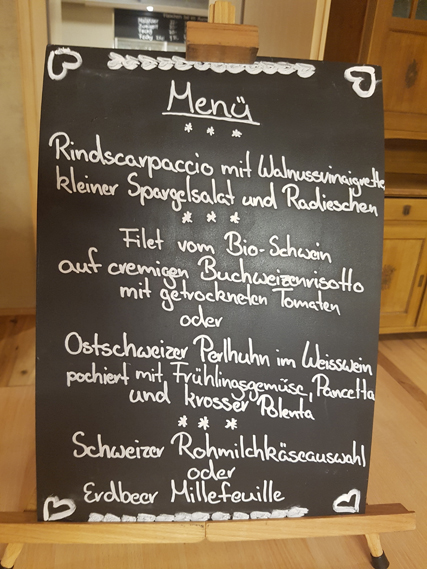 Menü
* * *
Rindscarpaccio mit Walnussvinaigrette
kleiner Spargelsalat und Radieschen
* * *
Filet vom Bio-Schwein
auf cremigen Buchweizenrisotto
mit getrockneten Tomaten
oder
Ostschweizer Perlhuhn im Weisswein
pochiert mit Frühlingsgemüse, Pancetta
und krosser Polenta
* * *
Schweizer Rohmilchkäseauswahl
oder
Erdbeer Millefeuille